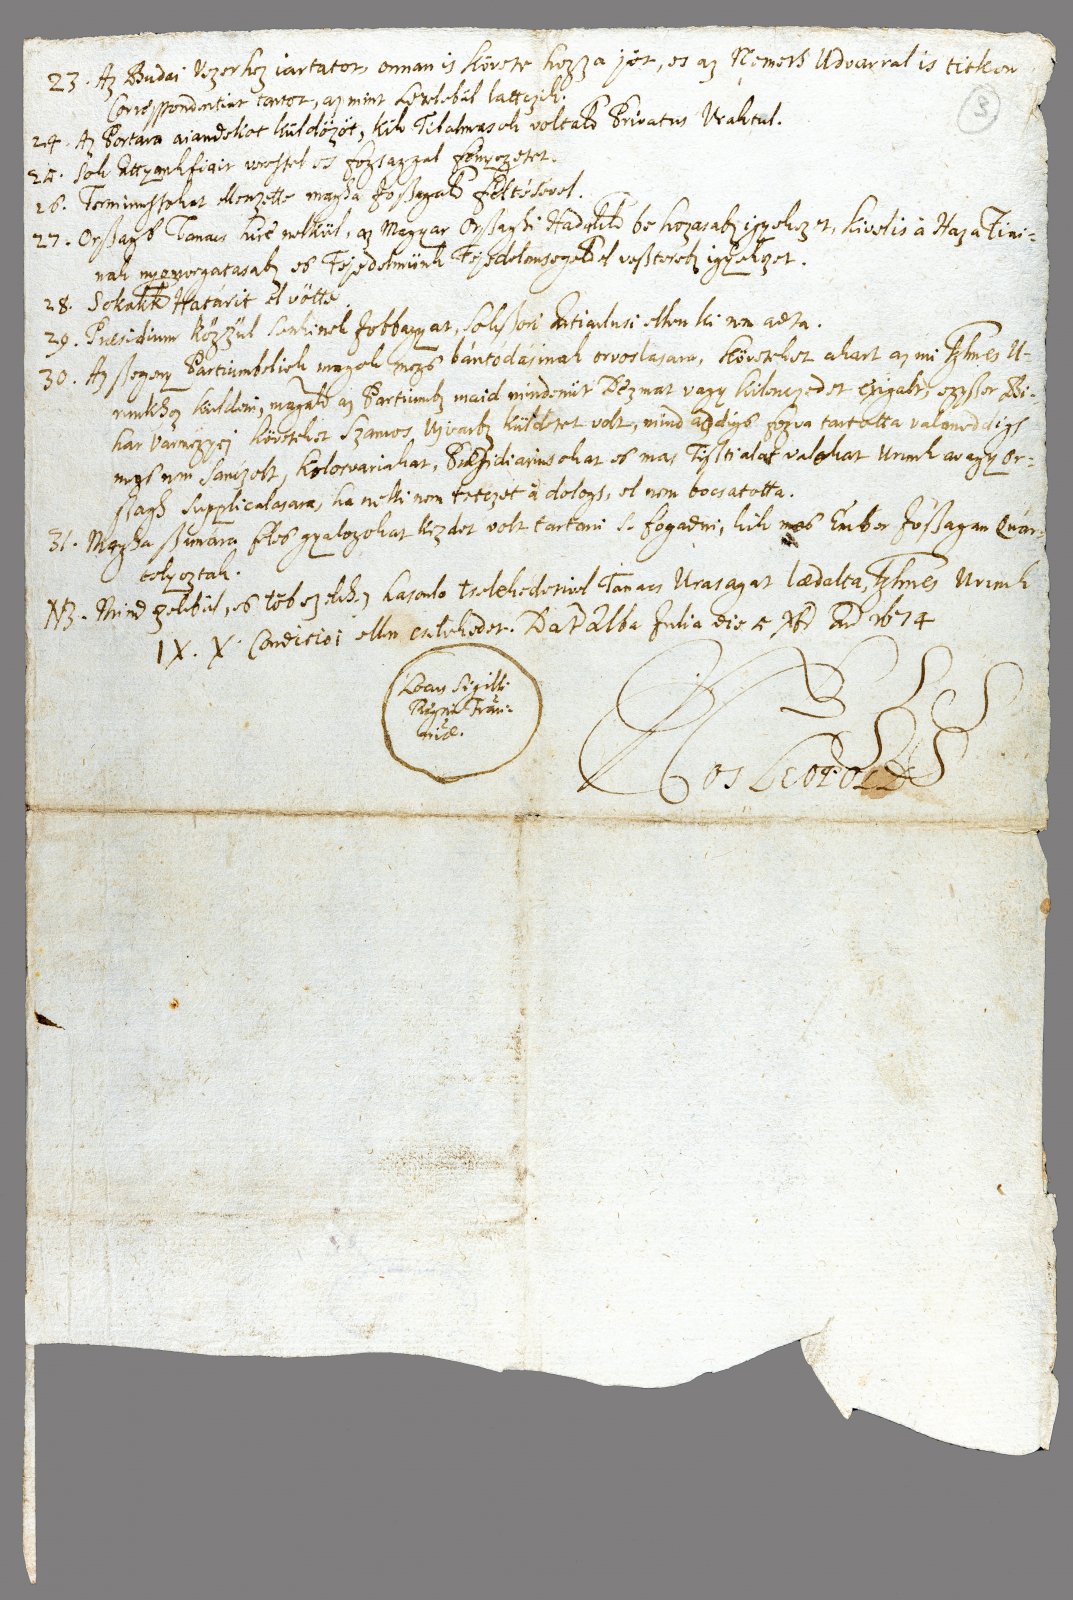 23. Az Budai Vezerhez iartatot, onnan is követe hozza jöt, es az Nemeth Udvarral is titkon
Correspondentiat tartot, az mint Levelebül lattczik.
24. Az Portara aiandekot küldözöt, kik Tilalmasok voltak Privatus Uraktul.
25. Sok Attyankfiait veressel es fogsaggal fenyegetet.
26. Terminusokat ellenzette maga joßagab
27. Orßagh Tanacs hire nelkül, az Magyar Orßaghi Hadak be hozasab igyekezet, kivel is à Haza Fiai-
nak nyomorgatasab es Fejedelmünk Fejedelemsegebül veßteseb igyekezet.
28. Sokak Hatarit el vötte.
29. Præsidium közzül senkinek Jobbagyat, soksori Articulusi ellen ki nem adta.
30. Az ßegeny Partiumbeliek magok megh bántódásinak orvoslasara, követeket akart az mi klmes U-
runkhoz küldeni, maga az Partiumb maid mindenüt Dézmat vagy kilenczedet exigalt, egyßer Bi-
har varmegyei követeket Szamos Ujvarb küldetet volt, mind addigh fogva tartotta valameddigh
megh nem sanczolt, Kolosvariakat, Præsidiariusokat es mas Tisztialat valokat Urunk avagy Or-
ßagh supplicalasara, ha neki nem tetczet à dologh, el nem bocsatotta.
31. Maga ßamara feles gyalogokat kezdet volt tartani s fogadni, kik megh Ember Joßagan Quar-
telyoztak.
NB. Mind ezekbül, es töb ezekhez hasonlo cselekedetivel Tanacs Urasagat lædalta, klmes Urunk
IX. X. Condicioi ellen cselekedet. Dat Alba Julia die 5 Xbr Ao 1674
Locus Sigilli
Regni Tran-
niæ.
Bos Leopold
3